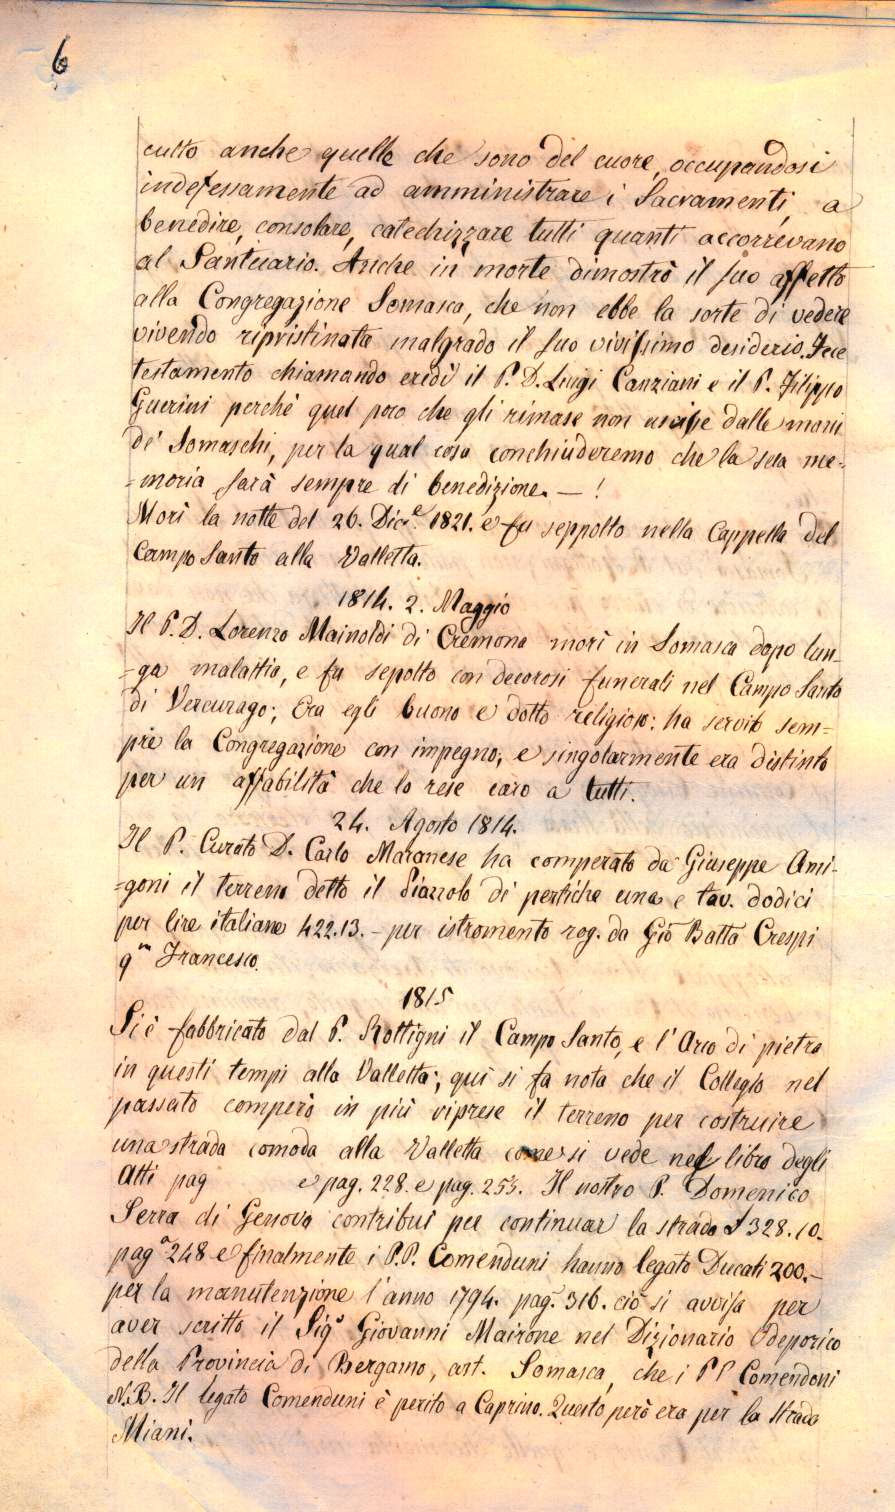 6
culto anche quelle che sono del cuore, occupandosi
indefessamente ad amministrare i Sacramenti, a
benedire, consolare, catechizzare tutti quanti accorrevano
al Santuario. Anche in morte dimostrò il suo affetto
alla Congregazione Somasca, che non ebbe la sorte di vedere
vivendo ripristinata malgrado il suo vivissimo desiderio. Fece
testamento chiamando eredi il P. D. Luigi Canziani e il P. Filippo
Guerini perchè quel poco che gli rimase non uscisse dalle mani
de' Somaschi, per la qual cosa conchiuderemo che la sua me=
=moria sarà sempre di benedizione. — !
Morì la notte del 26. Dic.e 1821. e fu seppolto nella Cappella del
Campo Santo alla Valletta.
1814. 2. Maggio
Il P. D. Lorenzo Mainoldi di Cremona morì in Somasca dopo lun=
=ga malattia, e fu sepolto con decorosi funerali nel Campo Santo
di Vercurago; Era egli buono e dotto religioso: ha servito sem=
pre la Congregazione con impegno, e singolarmente era distinto
per un affabilità che lo rese caro a tutti.
24. Agosto 1814.
Il P. Curato D. Carlo Maranese ha comperato da Giuseppe Ami-
=goni il terreno detto il Piazzolo di pertiche una e tav. dodici
per lire italiane 422.13. – per istromento rog. da Gio Batta Crespi
qm Francesco.
1815
Si è fabbricato dal P. Rottigni il Campo Santo, e l'Arco di pietra
in questi tempi alla Valletta; qui si fa nota che il Collegio nel
passato comperò in più riprese il terreno per costruire
una strada comoda alla Valletta come si vede nel libro degli
Atti pag e pag. 228. e pag. 253. Il nostro P. Domenico
Serra di Genova contribuì per continuar la strada £ 328.10.
paga 248 e finalmente i P.P. Comenduni hanno legato Ducati 200.–
per la manutenzione l'anno 1794. pag. 316. ciò si avvisa per
aver scritto il Sigr Giovanni Mairone nel Dizionario Odeporico
della Provincia di Bergamo, art. Somasca, che i PP Comendoni
N.B. Il legato Comenduni è perito a Caprino. Questo però era per la strada
Miani.